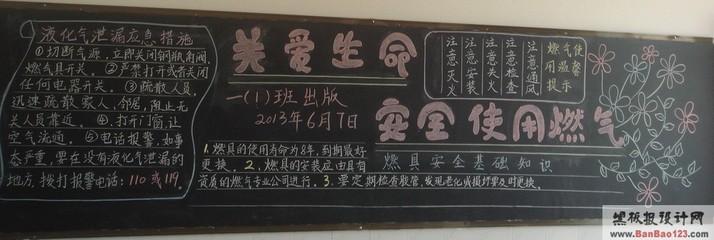 液化气泄漏应急措施
①切断气源,立即关闭钢瓶角阀、
燃气具开关。②严禁打开或者关闭
任何电器开关。③疏散人员
迅速疏散家人、邻居,阻止无
关人员靠近。④打开门窗,让
空气流通。⑤电话报警,如事
态严重,要在没有液化气泄漏的
地方,拨打报警电话:110或119。
关爱生命
一(1)班出版
2013年6月7日
燃气使
用温馨
提示
注意通风
注意检查
注意关火
注意安装
注意灭火
安全使用燃气
燃具安全基础知识
1.燃具的使用寿命为8年,到期最好
更换。2.燃具的安装应由具有
资质的燃气专业公司进行。3.要定期检查胶管,发现老化或损坏要及时更换。
黑板报设计网
www.BanBao123.com